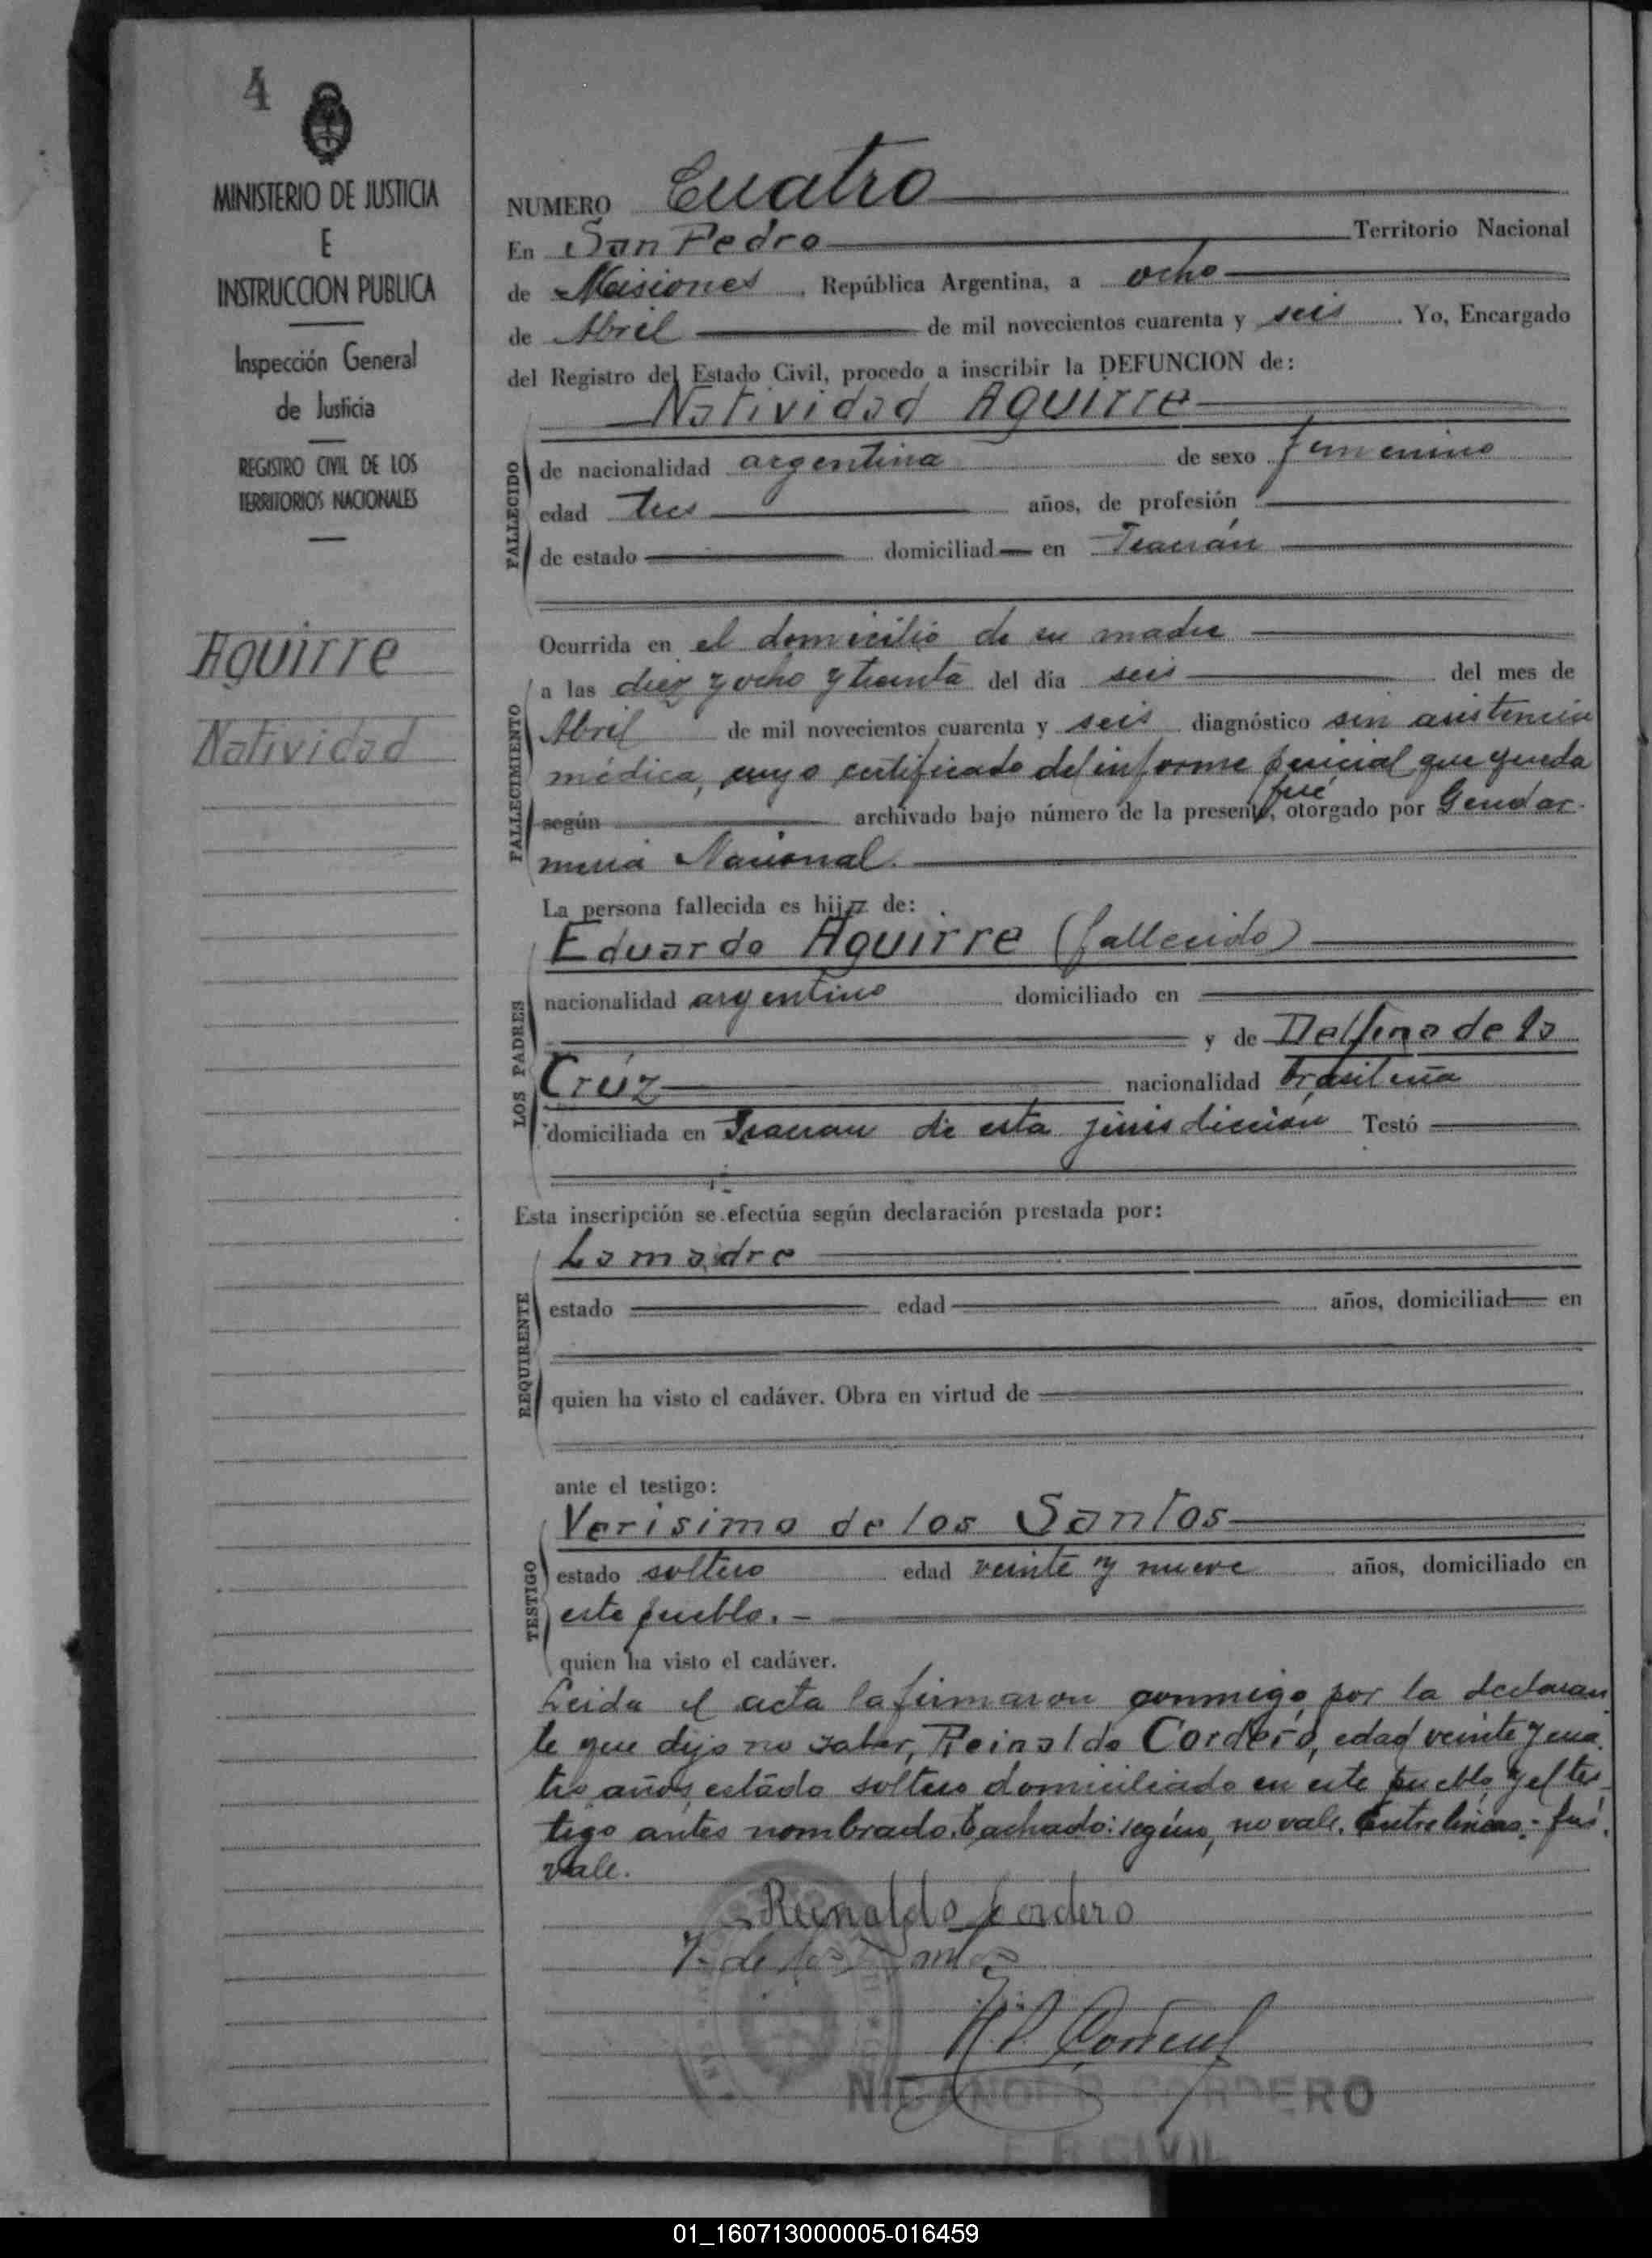 4
MINISTERIO DE JUSTICIA
E
INSTRUCCION PUBLICA
Inspección General
de Justicia
REGISTRO CIVIL DE LOS
TERRITORIOS NACIONALES
Aguirre
Natividad
NUMERO Cuatro
En San Pedro Territorio Nacional
de Misiones, República Argentina, a ocho
de Abril de mil novecientos cuarenta y seis. Yo, Encargado
del Registro del Estado Civil, procedo a inscribir la DEFUNCION de:
Natividad Aguirre
FALLECIDO
de nacionalidad argentina de sexo femenino
edad tres años, de profesión
de estado domiciliad en Piacrán
Ocurrida en el domicilio de su madre
FALLECIMIENTO
a las diez y ocho y treinta del día seis del mes de
Abril de mil novecientos cuarenta y seis diagnóstico sin asistencia
médica, cuyo certificado del informe pericial que queda
fué
según archivado bajo número de la presente, otorgado por Gendar-
mería Nacional.
La persona fallecida es hija de:
LOS PADRES
Eduardo Aguirre (fallecido)
nacionalidad argentino domiciliado en
y de Delfina de la
Crúz nacionalidad brasileña
domiciliada en de esta jurisdicción Testó
Esta inscripción se efectúa según declaración prestada por:
REQUIRENTE
La madre
estado edad años, domiciliad en
quien ha visto el cadáver. Obra en virtud de
ante el testigo:
TESTIGO
Verisimo de los Santos
estado soltero edad veinte y nueve años, domiciliado en
este pueblo.-
quien ha visto el cadáver.
Leida el acta la firmaron conmigo, por la declaran
te que dijo no saber, Reinaldo Cordero, edad veinte y cua
tro años, estado soltero domiciliado en este pueblo y el tes
tigo antes nombrado. Tachado: según, no vale. Entre lineas:- fué.
vale.
Reinaldo Cordero
V. de los Santos
NICANOR P. CORDERO
E. R. CIVIL
01_160713000005-016459